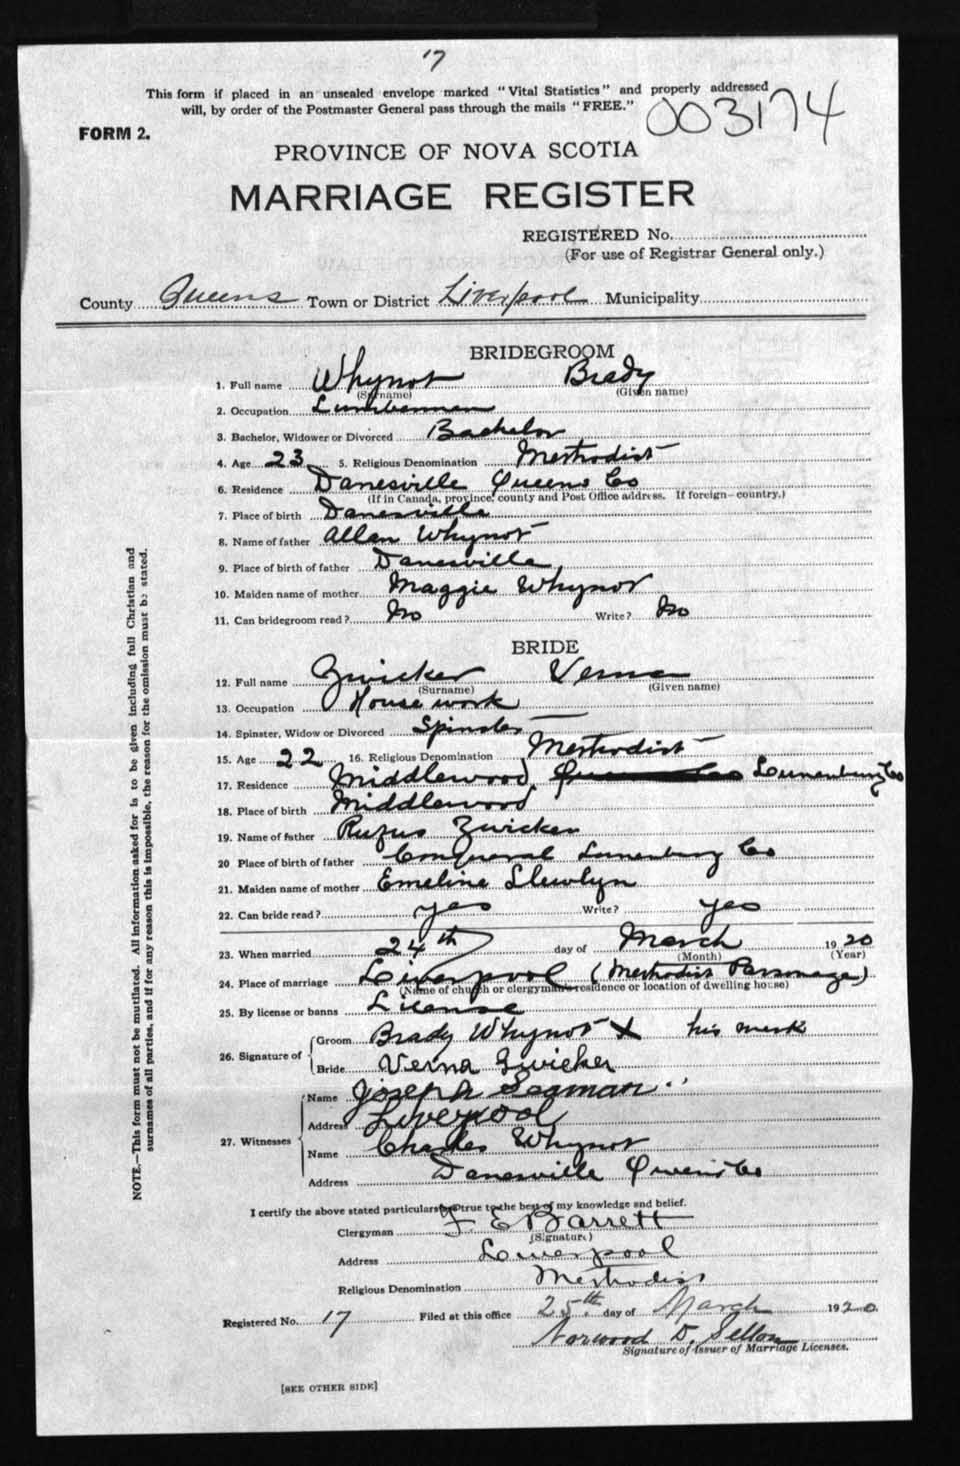 17
This form if placed in an unsealed envelope marked "Vital Statistics" and properly addressed
will, by order of the Postmaster General pass through the mails "FREE."
003174
FORM 2.
PROVINCE OF NOVA SCOTIA
MARRIAGE REGISTER
REGISTERED No.
(For use of Registrar General only.)
County Queens Town or District Liverpool Municipality
BRIDEGROOM
1. Full name Whynot Brady
(Surname) (Given name)
2. Occupation Lumberman
3. Bachelor, Widower or Divorced Bachelor
4. Age 23 5. Religious Denomination Methodist
6. Residence Danesville Queens Co
(If in Canada, province, county and Post Office address. If foreign—country.)
7. Place of birth Danesville
8. Name of father Allan Whynot
9. Place of birth of father Danesville
10. Maiden name of mother Maggie Whynot
11. Can bridegroom read? No Write? No
BRIDE
12. Full name Zwicker Verna
(Surname) (Given name)
13. Occupation House work
14. Spinster, Widow or Divorced Spinster
15. Age 22 16. Religious Denomination Methodist
17. Residence Middlewood Queens Co Lunenburg Co
18. Place of birth Middlewood
19. Name of father Rufus Zwicker
20 Place of birth of father Conquerall Lunenburg Co
21. Maiden name of mother Emeline Llewlyn
22. Can bride read? yes Write? yes
23. When married 24th day of March 1920
(Month) (Year)
24. Place of marriage Liverpool (Methodist Parsonage)
(Name of church or clergyman's residence or location of dwelling house)
25. By license or banns License
26. Signature of Groom Brady Whynot X his mark
Bride Verna Zwicker
27. Witnesses Name Joseph Seaman
Address Liverpool
Name Charles Whynot
Address Danesville Queens Co
I certify the above stated particulars to be true to the best of my knowledge and belief.
Clergyman F. E. Barrett
(Signature)
Address Liverpool
Religious Denomination Methodist
Registered No. 17 Filed at this office 25th day of March 1920
Norwood D. Sellon
Signature of Issuer of Marriage Licenses.
[SEE OTHER SIDE]
NOTE.—This form must not be mutilated. All information asked for is to be given including full Christian and
surnames of all parties, and if for any reason this is impossible, the reason for the omission must be stated.